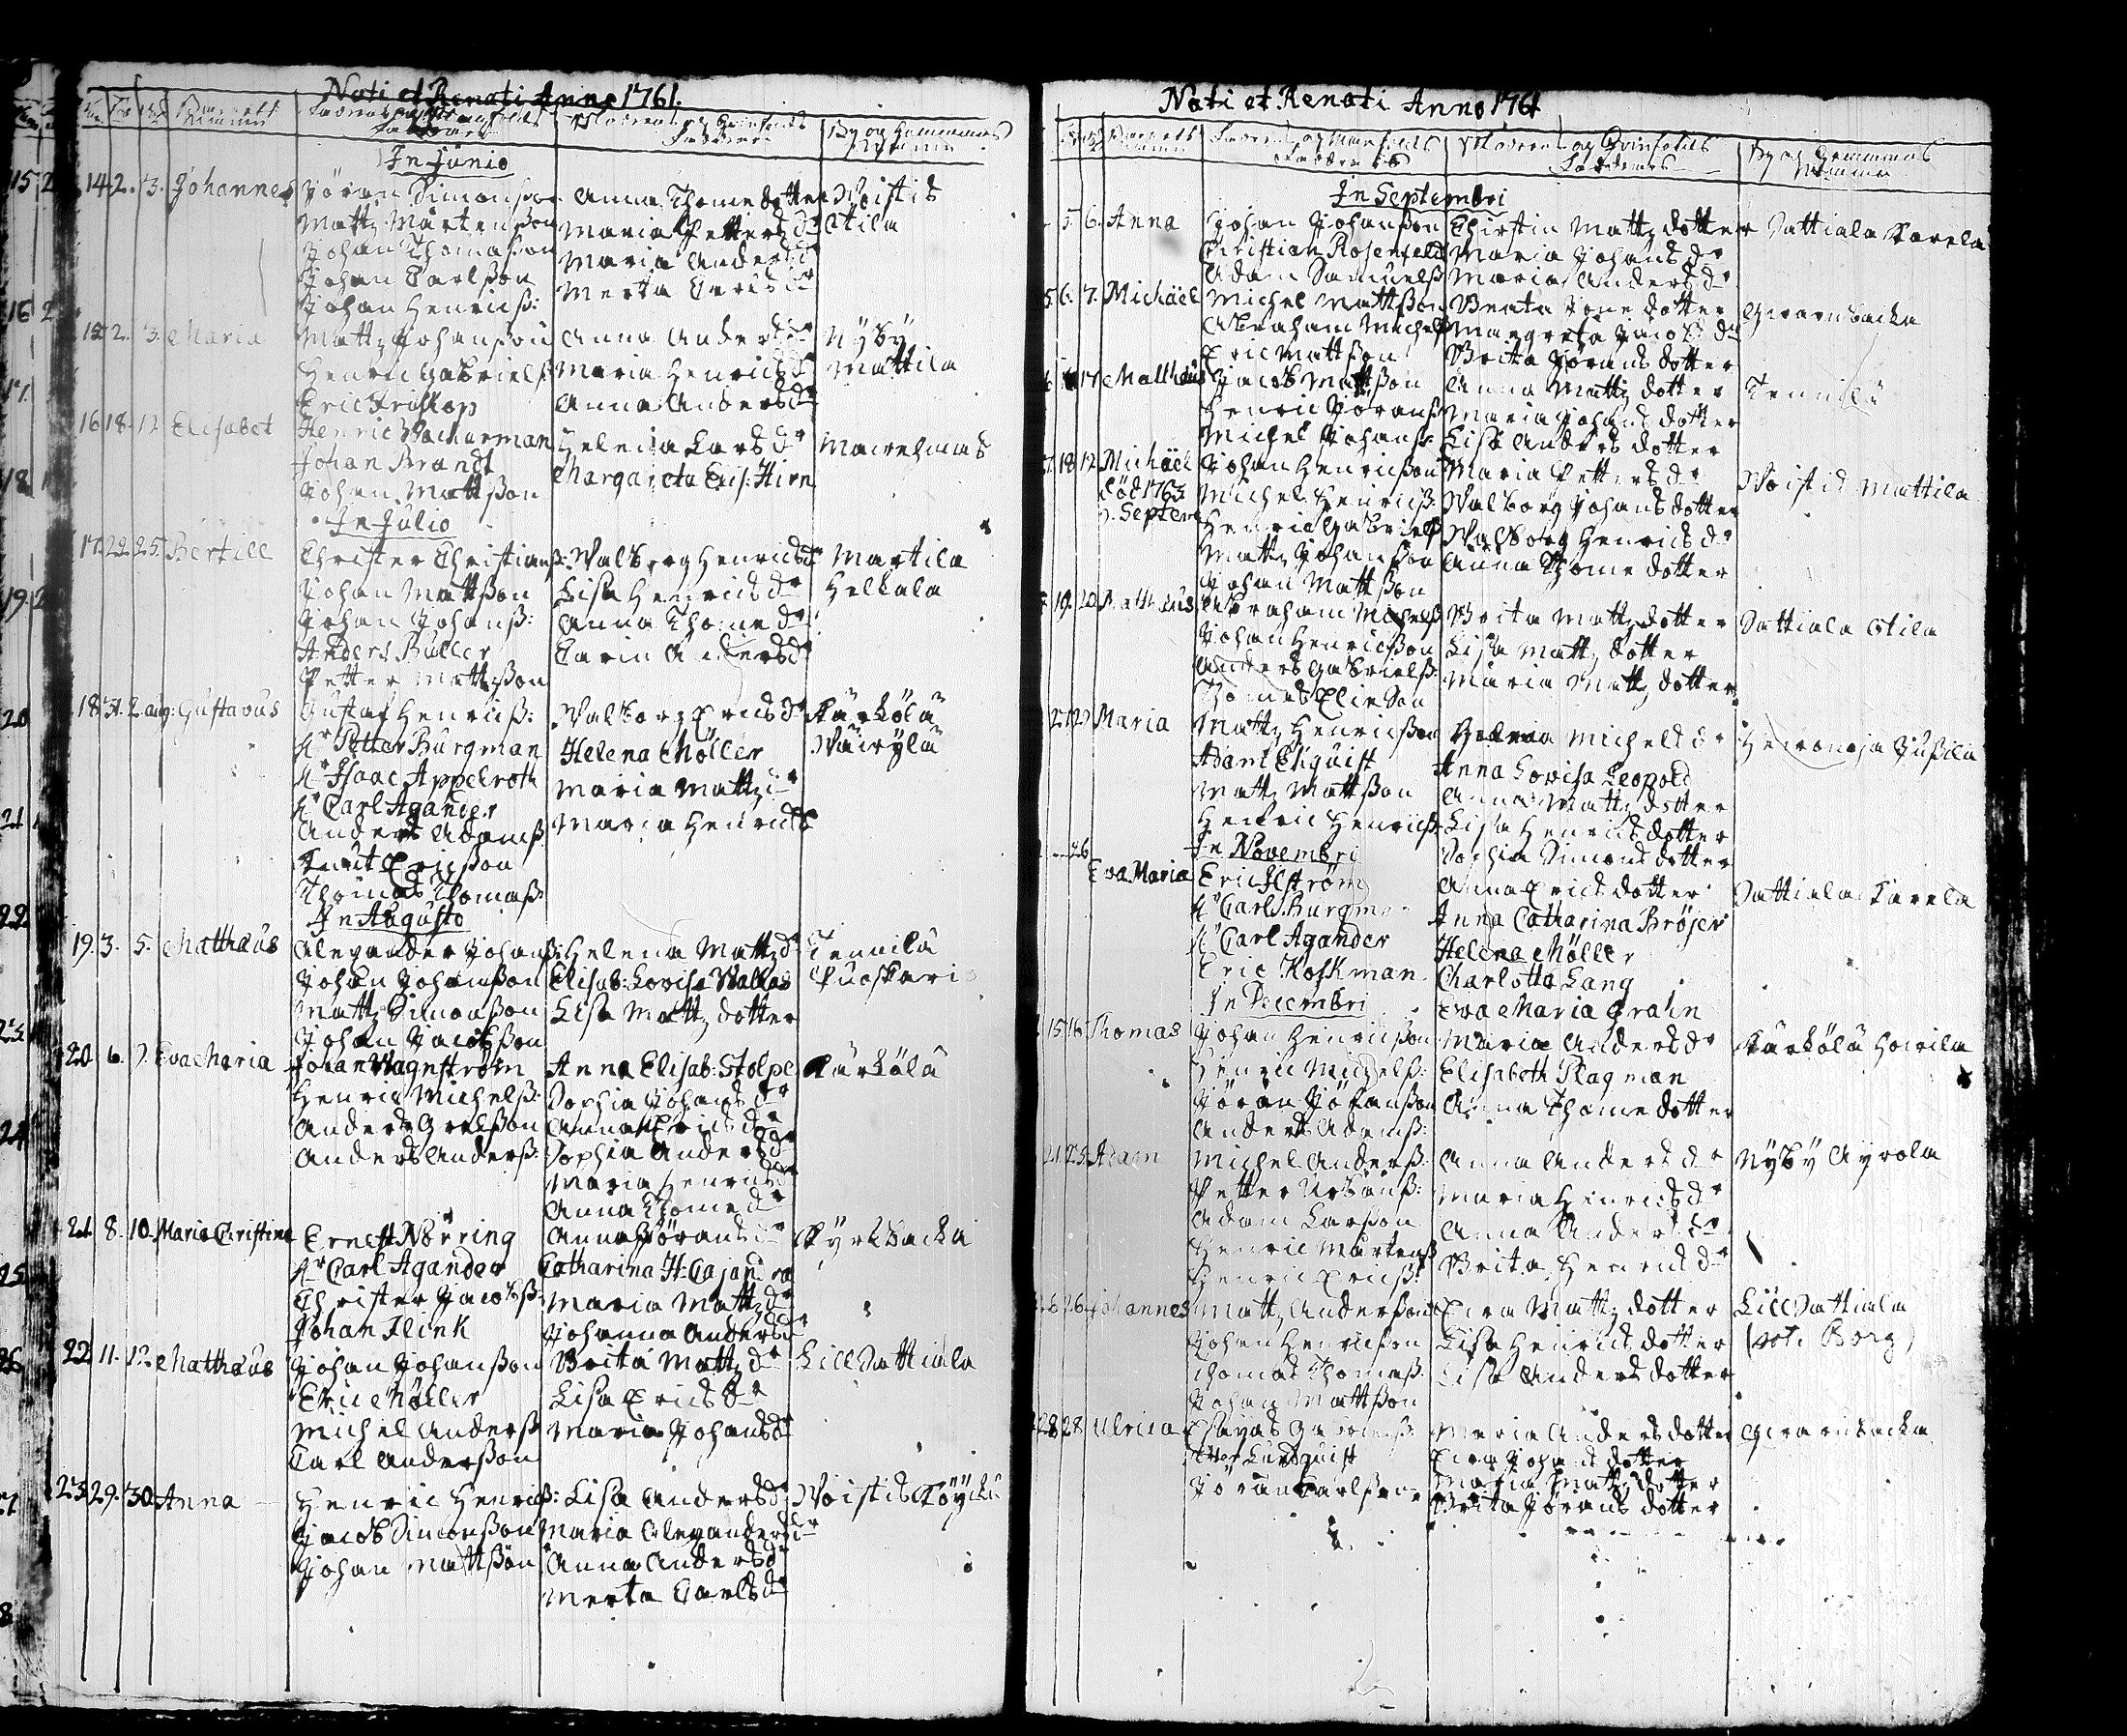 Nati et Renati Anno 1761.
Barnets
In Junio
14 2. 3. Johannes Jöran Simonsson Anna Thome dotter Woistis
Mattz Mårtensson Maria Petters dr Otila
Johan Thomasson Maria Anders dr
Johan Carlsson Merta Carls dr
Johan Henricß:
15 2. 3. Maria Mattz Johansson Anna Anders dr Nÿbÿ
Henric Gabrielß Maria Henrics dr Mattila
Eric Friskop Anna Anders dr
16 18. 19 Elisabet Henric Wacharman Helena Lars dr
Johan Brandt Margareta Eris: Hirn
Johan Mattsson
In Julio
17. 22. 25. Bertill Christer Christianß: Walborg Henricsd Martila
Johan Mattsson Lisa Henrics dr Helkala
Johan Johanß: Anna Thome dr
Anders Buller Carin Andersdr
Petter Mattsson
18. 31. 2. aug: Gustavus Gustaf Henricß: Walborg Erics dr Kärkölä
Hr Petter Burgman Helena Möller Wäirÿlä
Hr Isaac Appelroth Maria Mattz dr
Hr Carl Agander Maria Henricsd
Anders Adamß
Knut Ericsson
Thomas Thomaß:
In Augusto
19. 3. 5. Matthæus Alexander Johanß: Helena Mattz d. Tennilä
Johan Johansson Elisab: Lovisa Wallas
Mattz Simonsson Lisa Mattz dotter
Johan Jacobsson
20 6. 7. Eva Maria Johan Wagnström Anna Elisab: Stolpe Kärkölä
Henric Michelß: Sophia Johans dr
Anders Grelsson Anna Erics dr
Anders Anderß: Sophia Anders dr
Maria Henrics dr
Anna Thome dr
21. 8. 10. Maria Christina Ernest Nörring Anna Jörans dr Kÿrkbacka
Hr Carl Agander Catharina H: Cajan
Christer Jacobß: Maria Mattz dr
Johan Flink Johanna Anders dr
22 11. 12. Matthæus Johan Johansson Brita Mattz dr Lill Sattiala
Eric Möller Lisa Erics dr
Michel Anderß Maria Johansdr
Carl Andersson
23 29. 30. Anna Henric Henricß: Lisa Andersdr Woistis
Jacob Simonsson Maria Alexanders dr
Johan Mattsson Anna Andersdr
Merta Carlsdr
Nati et Renati Anno 1761
In Septembri
5. 6. Anna Johan Johansson Chirstin Mattz dotter Sattiala Karela
Christian Rosenfeld Maria Johans dr
Adam Samuelß Maria Anders dr
6. 7. Michäel Michel Mattsson Beata Tone dotter
Abraham Michelß Margreta Jacobs dr
Eric Mattsson Brita Jörans dotter
17 Matthæus Jacob Mattsson Anna Mattz dotter Tennilä
Henric Jöranß Maria Johans dotter
Michel Johanß Lisa Anders dotter
18 19 Michäel Johan Henricsson Maria Petters dr Woistis Mattila
död 1763 Michel Henricß: Walborg Johans dotter
Septem Henric Gabrielß Walborg Henrics dr
Mattz Johansson Anna Thome dotter
Johan Mattsson
19. 20 Matthæus Abraham Michelß Brita Mattz dotter Sattiala Otila
Johan Henricsson Lisa Mattz dotter
Anders Gabrielß: Maria Mattz dotter
Thomas Elinson
Maria Mattz Henricsson Helena Michels dr
Adam Ekquist Anna Lovisa Leopold
Mattz Mattsson Anna Mattz dotter
Henric Henricß Lisa Henrics dotter
In Novembri Sophia Simons dotter
26 Eva Maria Eric Elström Anna Erics dotter Sattiala Karela
Hr Carl J. Burgman Anna Catharina Bröjer
Hr Carl Agander Helena Möller
Eric Koskman Charlotta Lang
In Decembri Eva Maria Grahn
15 16 Thomas Johan Henricsson Maria Anders dr Kärkölä Howila
Henric Michelß: Elisabeth Plagman
Jöran Jöransson Anna Thome dotter
Anders Adamß:
21. 25. Adam Michel Anderß: Anna Anders dr Nÿbÿ Äyrola
Petter Urbanß: Maria Henrics dr
Adam Larsson Anna Anders dr
Henric Mårtenß Brita Henrics dr
Henric Ericß:
26 26 Johannes Mattz Andersson Eva Mattz dotter Lill Sattiala
Johan Henricsson Lisa Henrics dotter
Thomas Thomaß Lisa Anders dotter
Johan Mattsson
28 28 Ulrica Maria Anders dotter
Petter Lundquist Johans dotter
Jöran Carlsson Maria Mattz dotter
Brita Jörans dotter